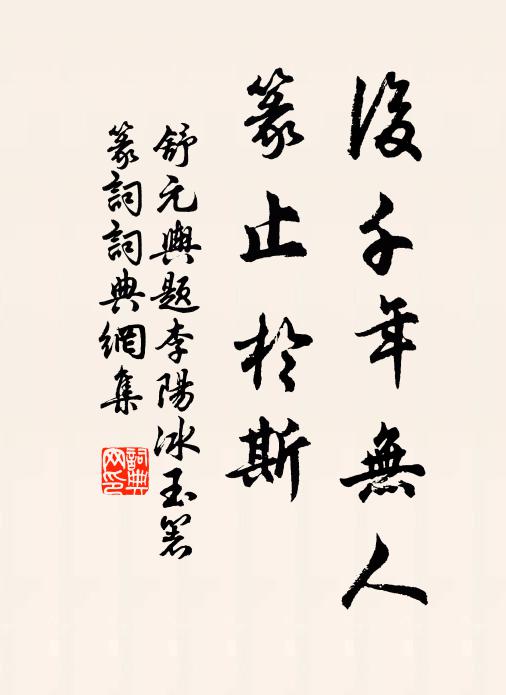 後千年無人
篆止於斯
舒元輿題李陽冰玉箸
篆詞詞典網集
詞典
网印